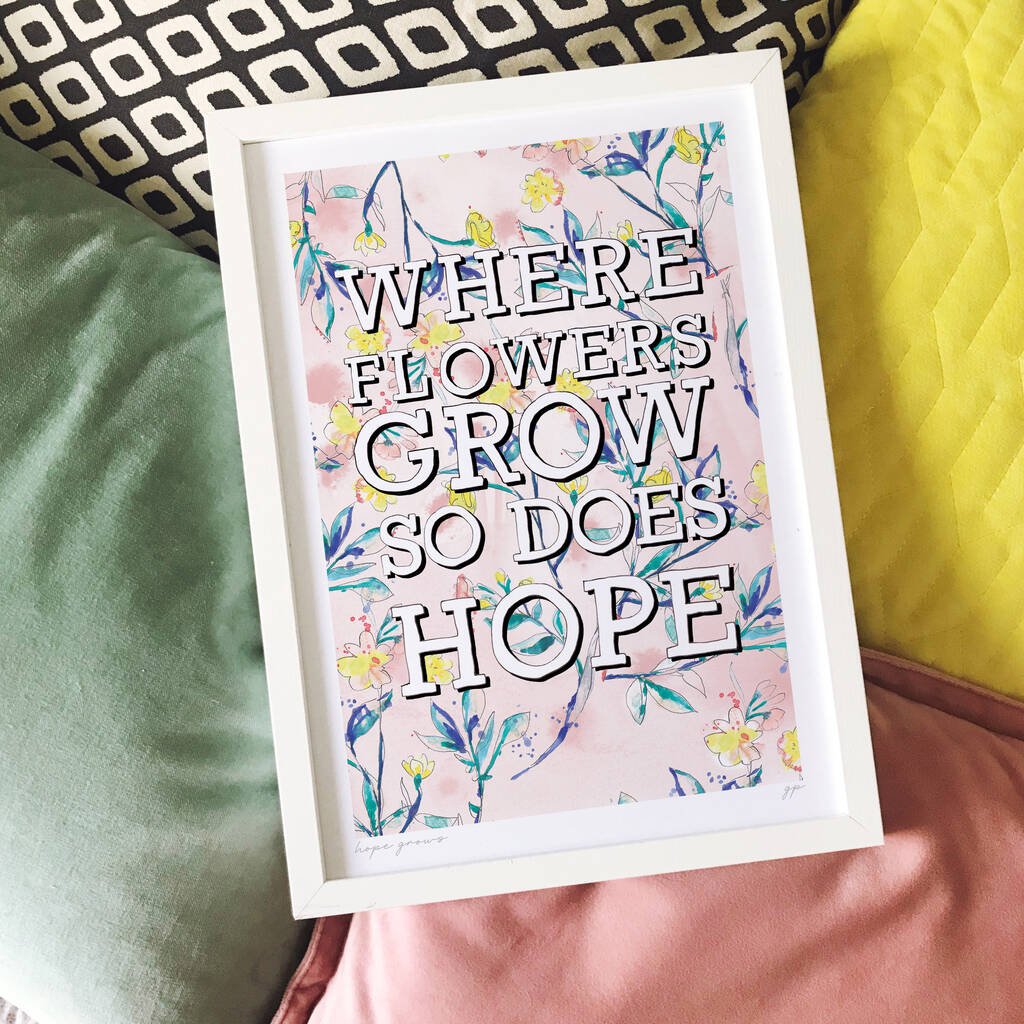 WHERE
FLOWERS
GROW
SO DOES
HOPE
hope grows
gp